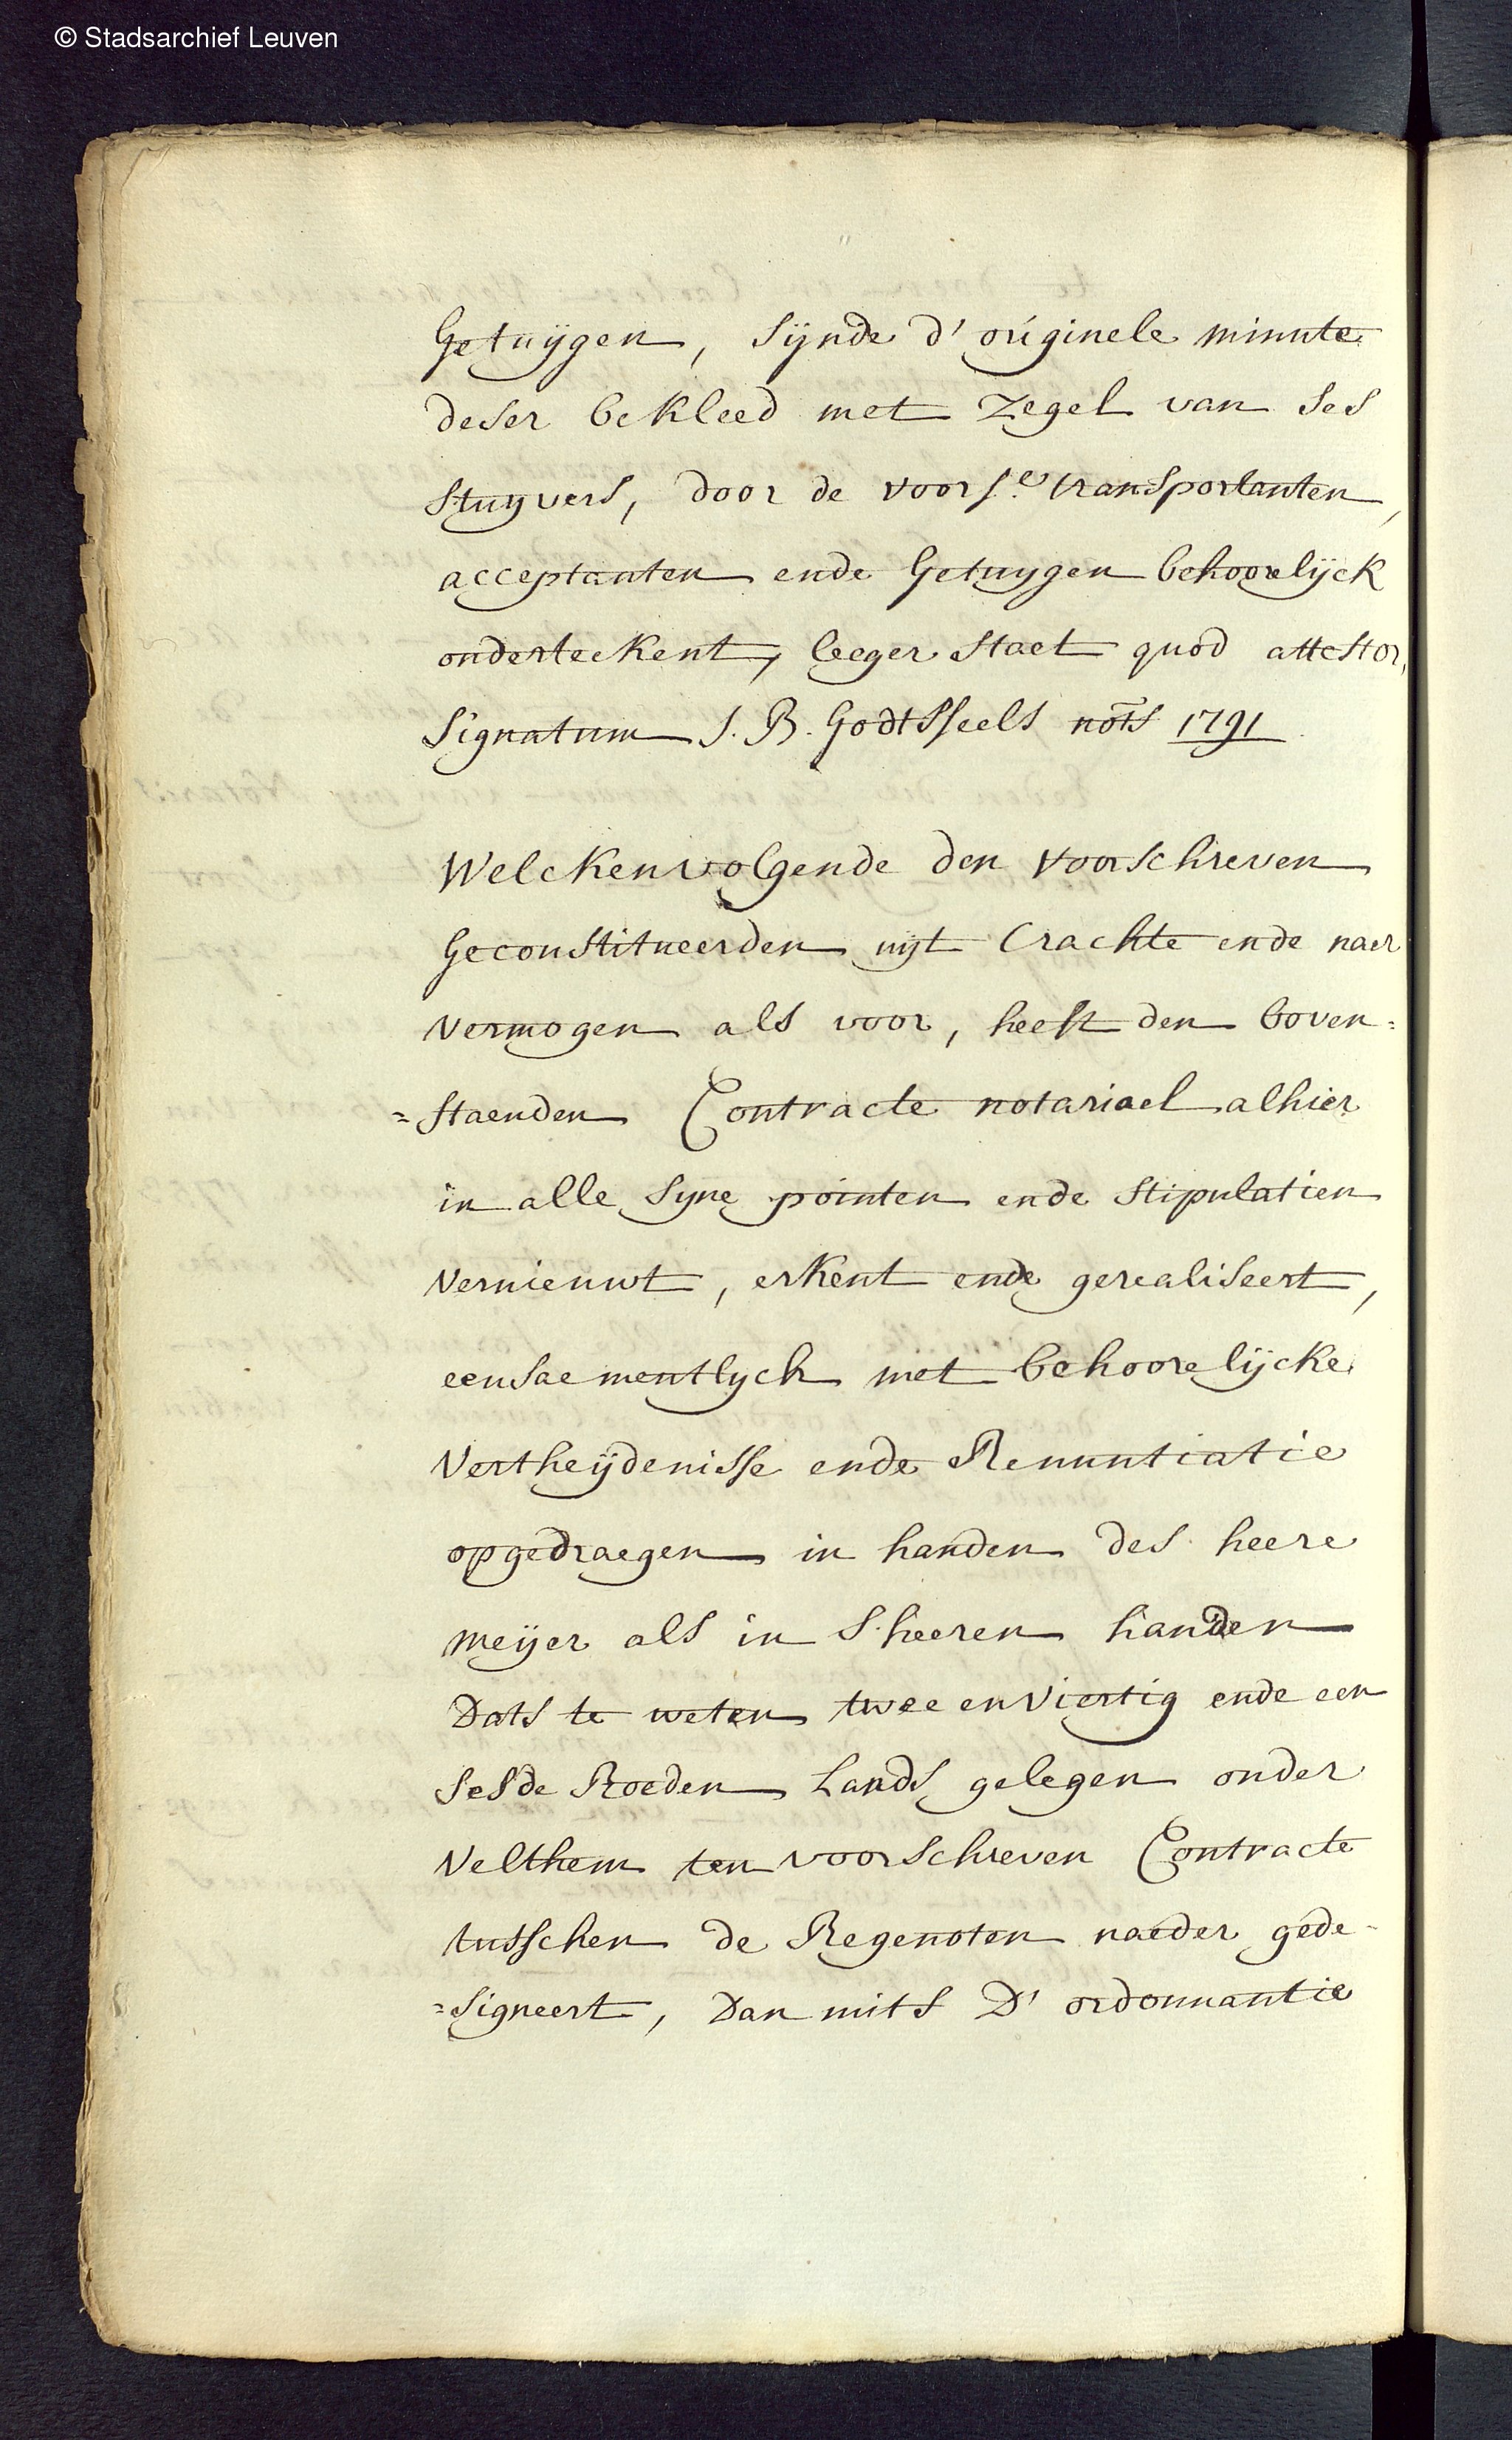 © Stadsarchief Leuven
Getuijgen, sijnde d' originele minute
deser bekleed met zegel van ses
stuyvers, door de voors.e transportanten,
acceptanten ende Getuygen behoorelijck
onderteekent, leeger staet quod attestor,
Signatum J. B. Godtsseels nots 1791
Welckenvolgende den voorschreven
Geconstitueerden uyt Crachte ende naer
vermogen als voor, heeft den boven=
=staenden Contracte notariael alhier
in alle syne pointen ende stipulatien
vernieuwt, erkent ende gerealiseert,
eensaementlyck met behoorelijcke
Vertheijdenisse ende Renuntiatie
opgedraegen in handen des heere
meijer als in S'heeren handen
Dats te weten twee en viertig ende een
sesde Roeden Lands gelegen onder
Velthem ten voorschreven Contracte
tusschen de Regenoten naeder gede-
=signeert, Dan mits D' ordonnantie